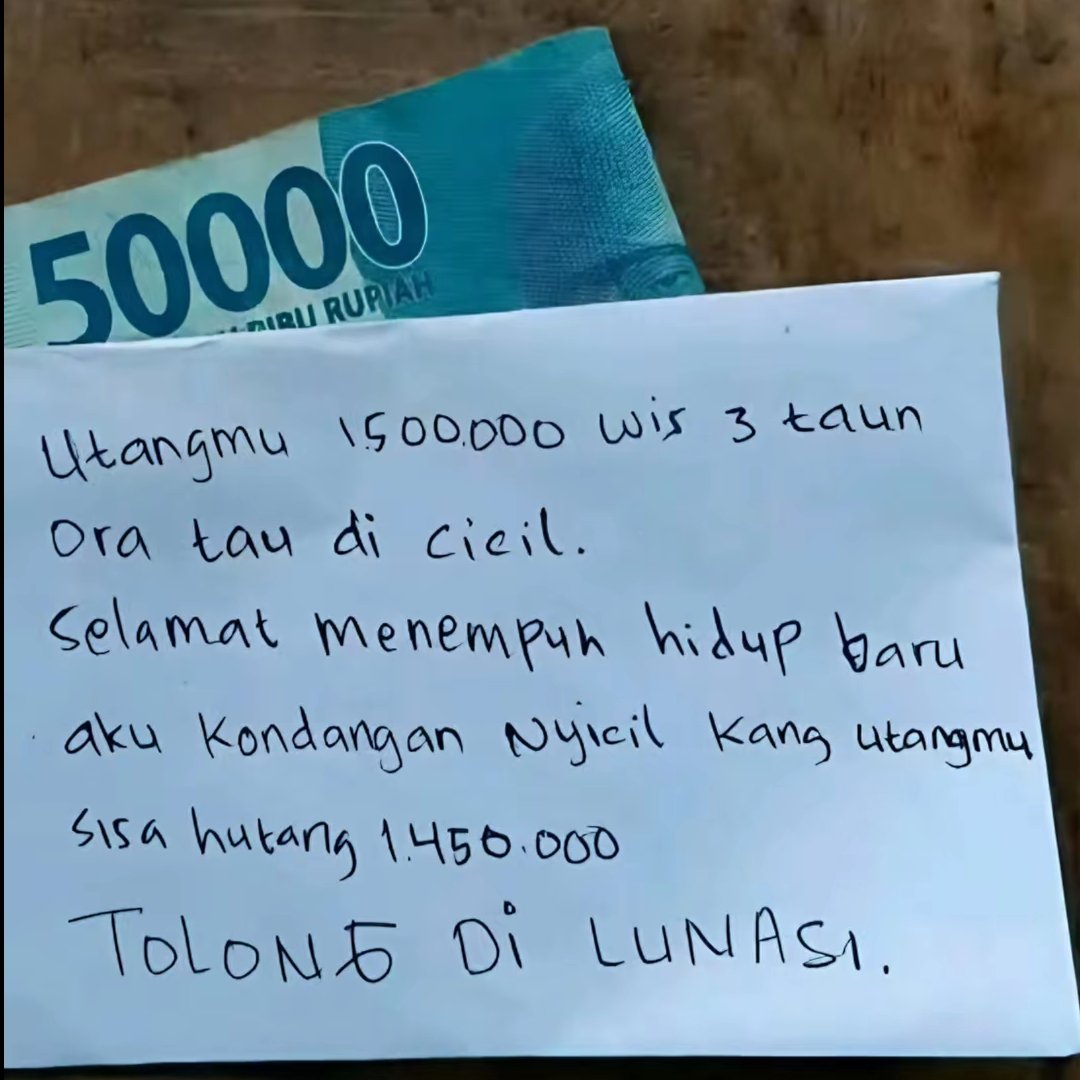 50000
RIBU RUPIAH
Utangmu 1.500.000 wis 3 taun
Ora tau di cicil.
Selamat menempuh hidup baru
aku kondangan Nyicil kang utangmu
sisa hutang 1.450.000
TOLONG Di LUNASI.